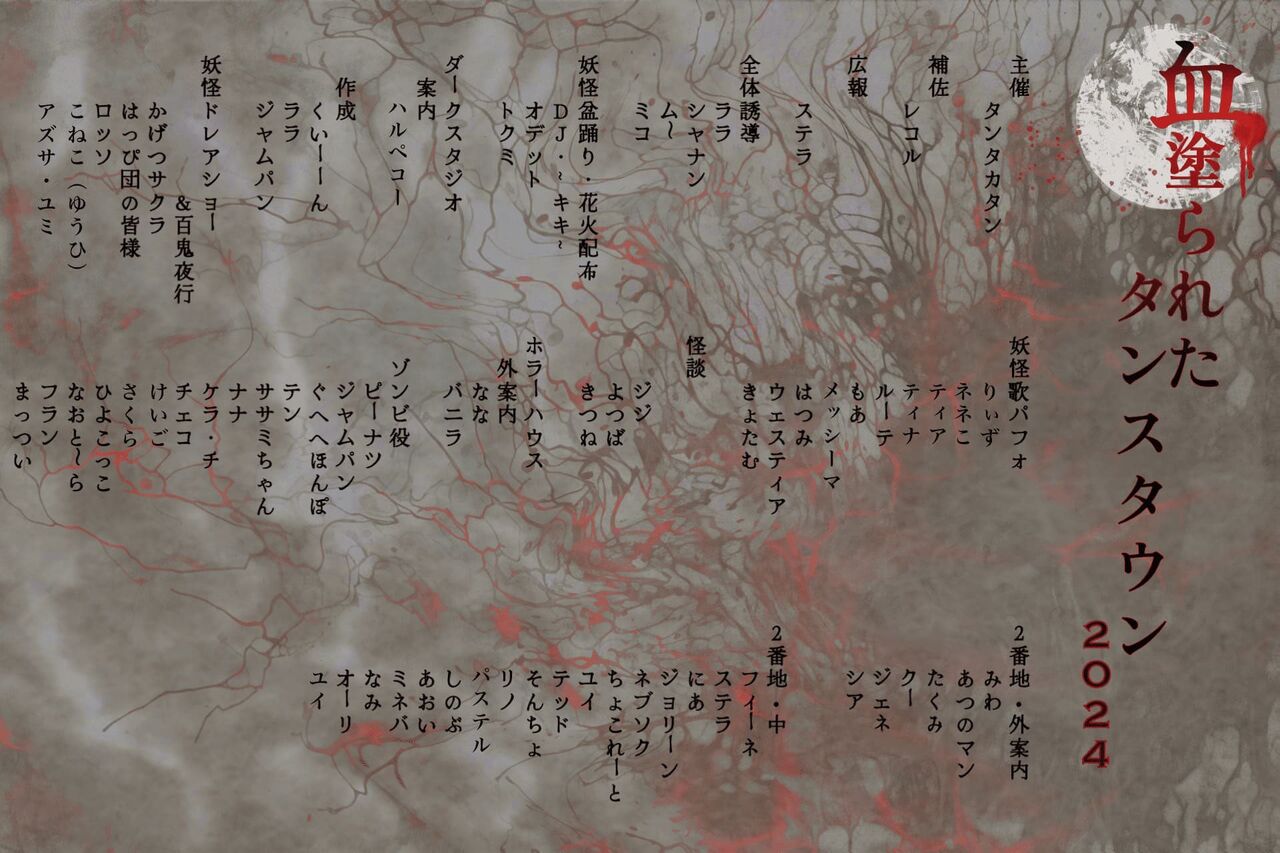 血塗られた
タンスタウン
2024
主催
タンタカタン
補佐
レコル
広報
ステラ
全体誘導
ララ
シャナン
ム～
ミコ
妖怪盆踊り・花火配布
DJ・~キキ~
オデット
トクミ
ダークスタジオ
案内
ハルペコー
作成
くいーーん
ララ
ジャムパン
妖怪ドレアショー
&百鬼夜行
かげつサクラ
はっぴ団の皆様
ロッソ
こねこ（ゆうひ）
アズサ・ユミ
妖怪歌パフォ
りぃず
ネネこ
ティア
ティナ
ルーテ
もあ
メッシーマ
はつみ
ウェスティア
きょたむ
怪談
ジジ
よつば
きつね
ホラーハウス
外案内
なな
バニラ
ゾンビ役
ピーナツ
ジャムパン
ぐへへほんぽ
テン
ササミちゃん
ナナ
ケラ・チ
チェコ
けいご
さくら
ひよこっこ
なおと～ら
フラン
まっつい
2番地・外案内
みわ
あつのマン
たくみ
クー
ジェネ
シア
2番地・中
フィーネ
ステラ
にあ
ジョリーン
ネブソク
ちょこれーと
ユイ
テッド
そんちょ
リノ
パステル
しのぶ
あおい
ミネバ
なみ
オーリ
ユイ